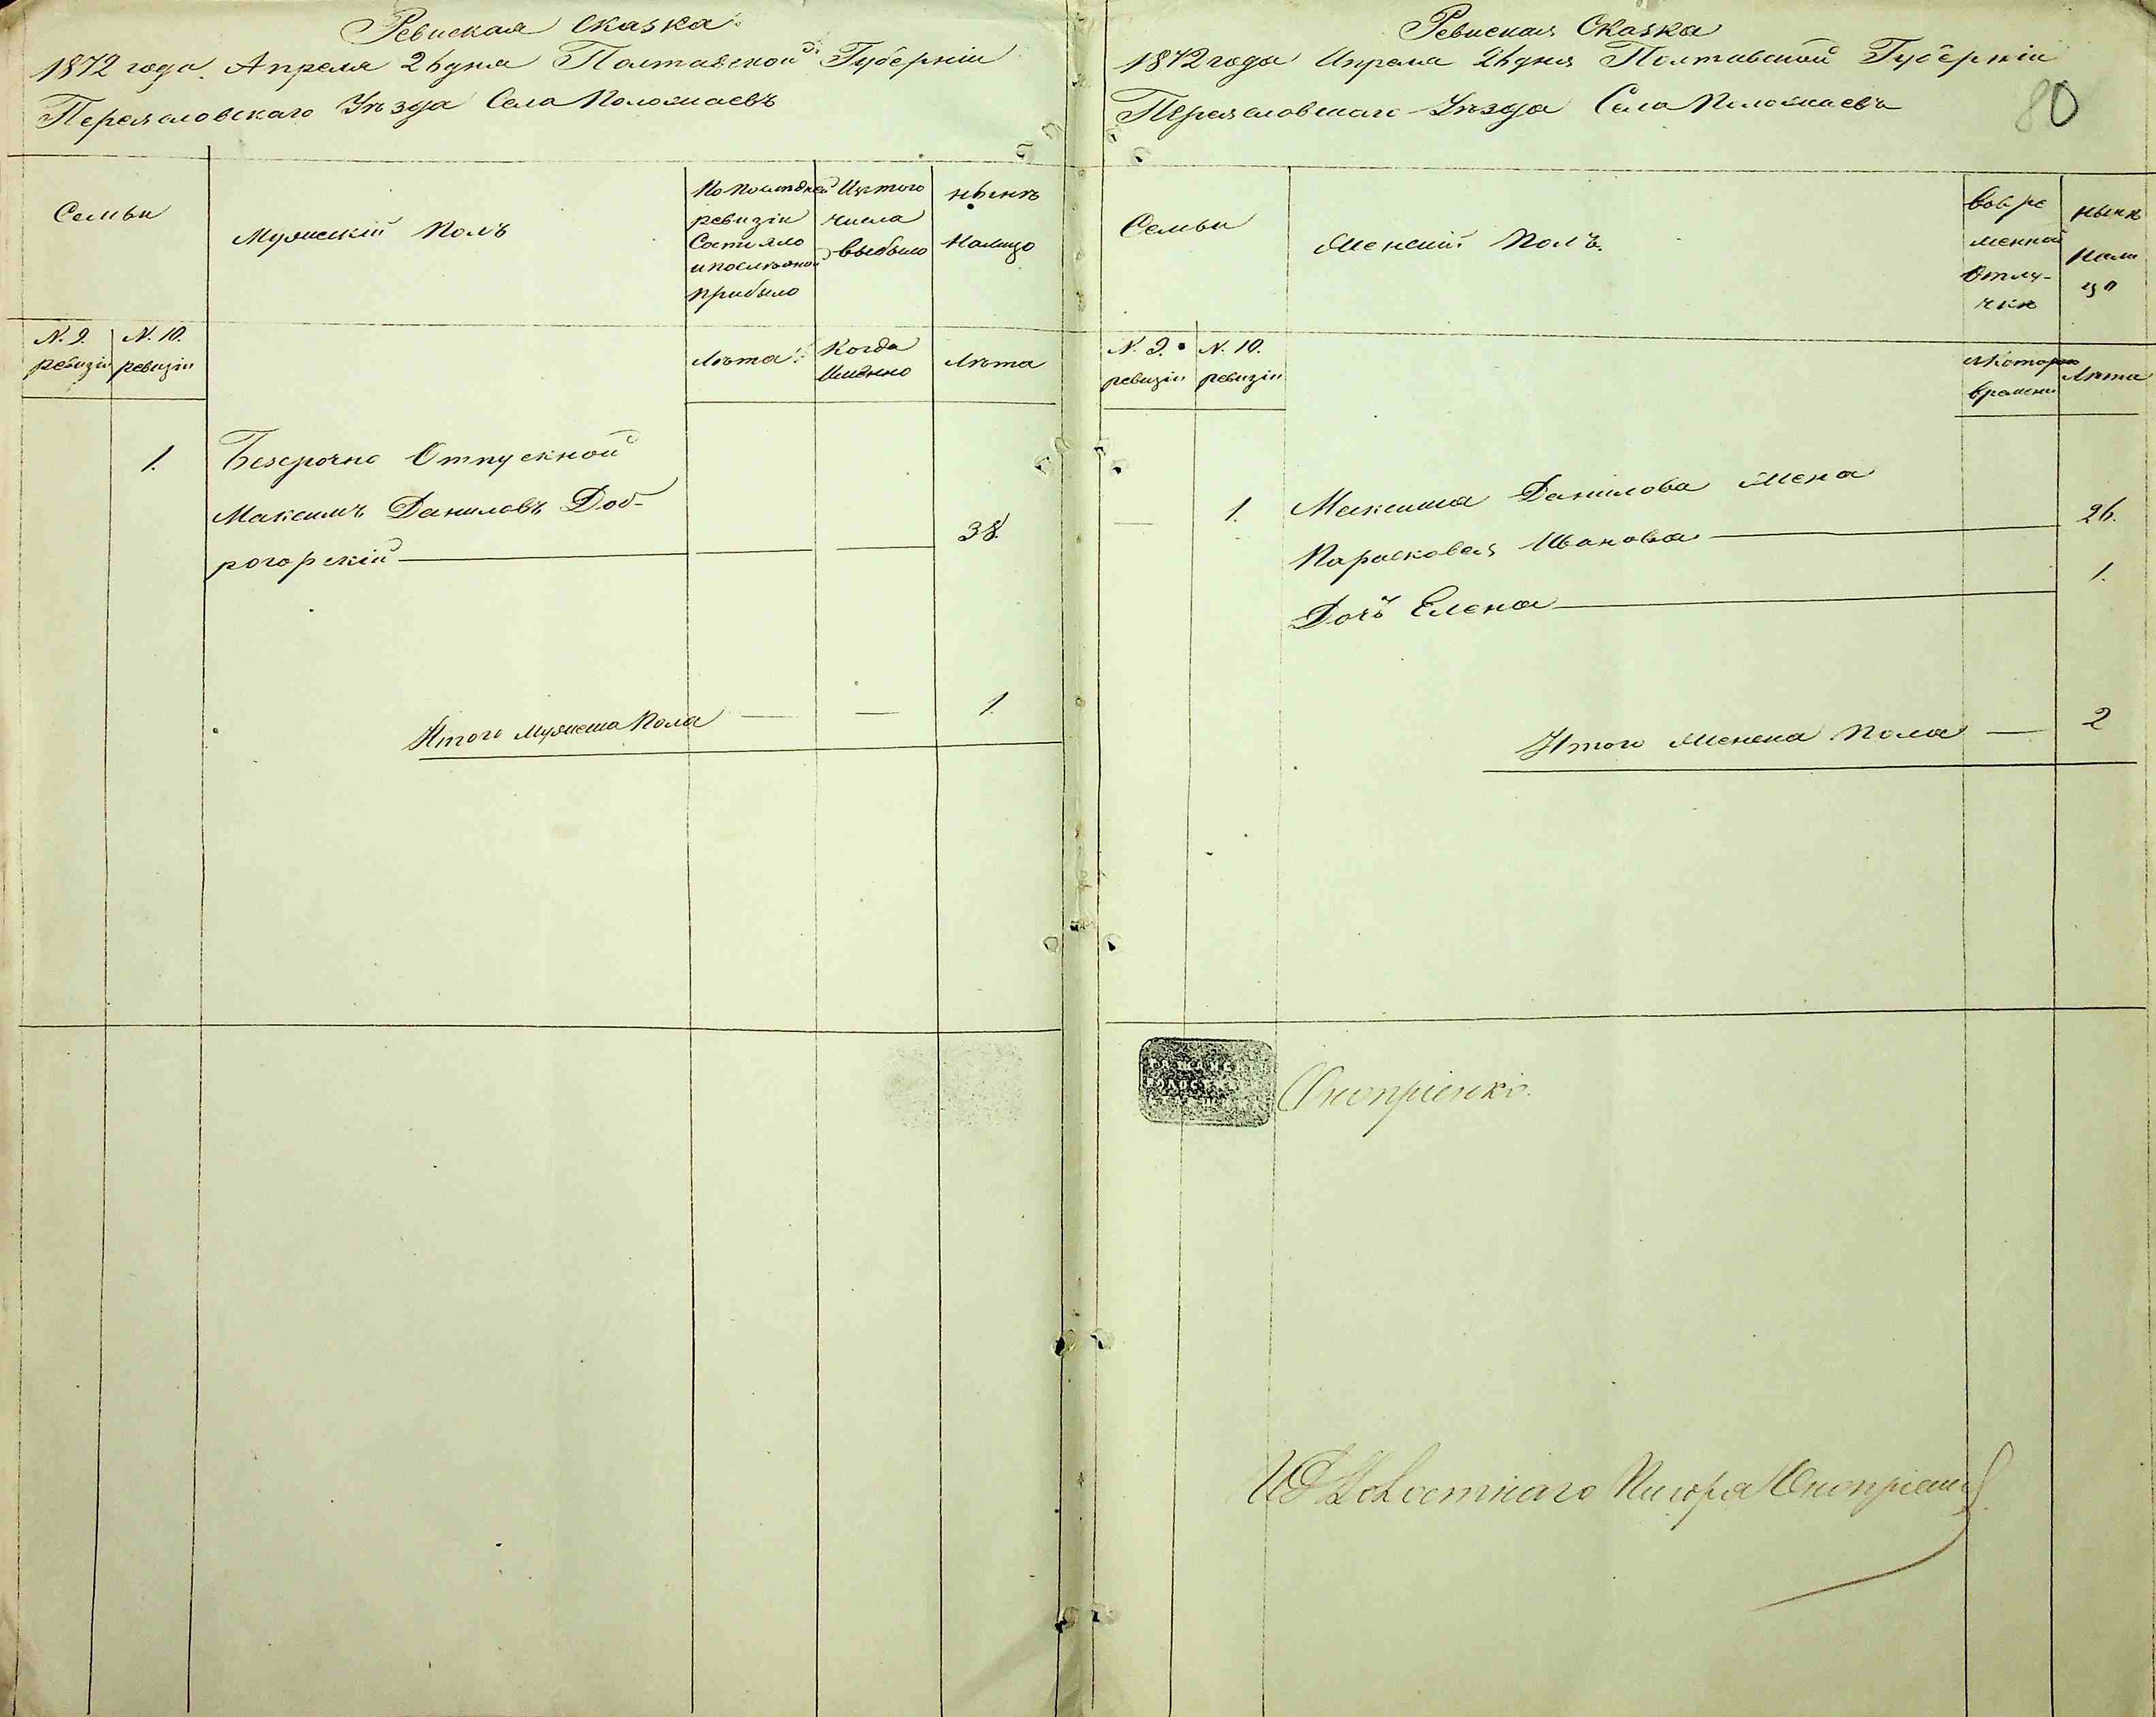 Ревиская Сказка
1872 года Апреля 26 дня Полтавской Губерніи
Переяславскаго Уѣзда Села Положаевъ
Семьи
Мужескій Полъ
По последней ревизіи Состояло и после оной прибыло
Изъ того числа выбыло
Нынѣ Налицо
N. 9. ревизіи
N. 10. ревизіи
Лѣта
Когда Именно
Лѣта
1. Безсрочно Отпускной
Максимъ Даниловъ Доб-
рогорскій — — — 38.
Итого Мужеска Пола — — 1.
Ревиская Сказка
1872 года Апреля 26 дня Полтавской Губерніи
Переяславскаго Уѣзда Села Положаевъ
80
Семьи
Женскій Полъ.
Вовре менной Отлу- чкѣ
Нынѣ Нали цо
N. 9. ревизіи
N. 10. ревизіи
времени
Лѣта
— 1. Максима Данилова Жена
Парасковея Иванова — 26.
Дочь Елена — 1.
Итого Женска Пола — 2
Оноприенко.
Волостнаго Писаря Оноприенко